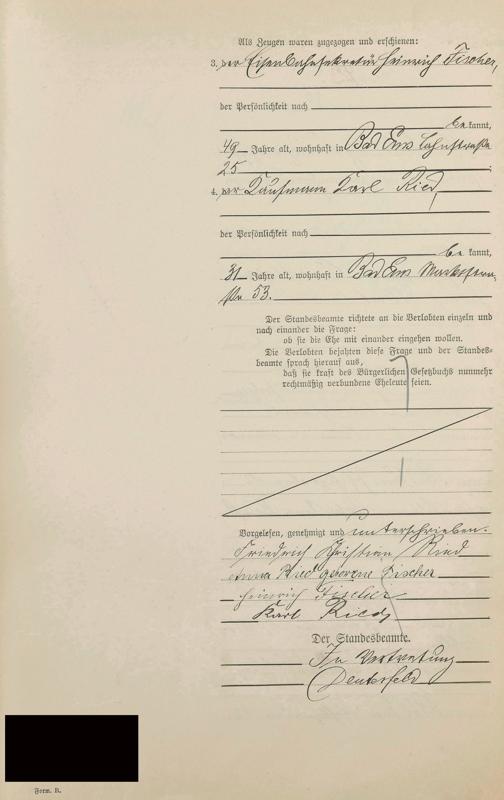 Als Zeugen waren zugezogen und erschienen:
3. der Eisenbahnsekretär Heinrich Fischer,
der Persönlichkeit nach
be kannt,
49 Jahre alt, wohnhaft in Bad Ems Lahnstraße
25 ;
4. der Kaufmann Karl Ried,
der Persönlichkeit nach
be kannt,
31 Jahre alt, wohnhaft in Bad Ems
53.
Der Standesbeamte richtete an die Verlobten einzeln und
nach einander die Frage:
ob sie die Ehe mit einander eingehen wollen.
Die Verlobten bejahten diese Frage und der Standes-
beamte sprach hierauf aus,
daß sie kraft des Bürgerlichen Gesetzbuchs nunmehr
rechtmäßig verbundene Eheleute seien.
Vorgelesen, genehmigt und unterschrieben.
Friedrich Christian Ried
Anna Ried geborene Fischer
Heinrich Fischer
Karl Ried
Der Standesbeamte.
In Vertretung
Form. B.